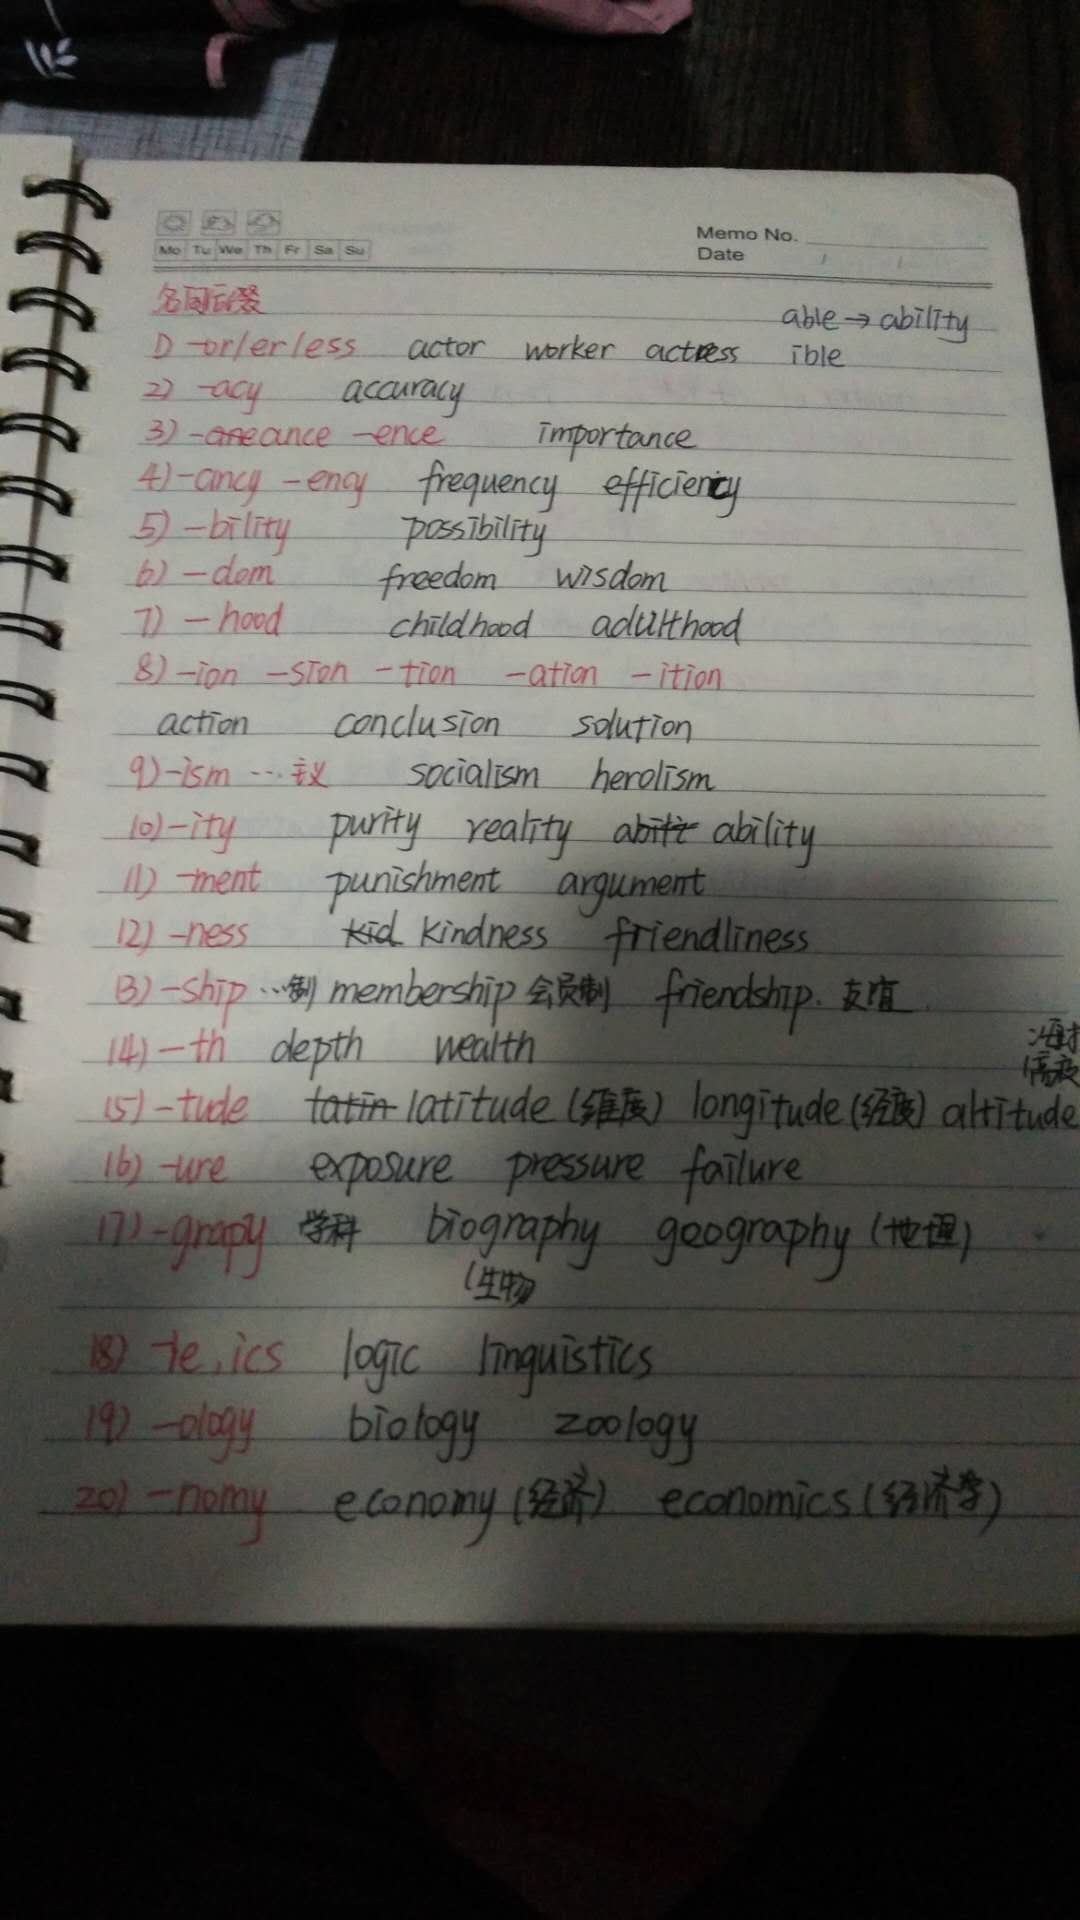 Mo Tu We Th Fr Sa Su
Memo No.
Date
名词后缀
able → ability
1) -or/er/ess actor worker actress ible
2) -acy accuracy
3) -ance -ence importance
4) -ancy -ency frequency efficiency
5) -bility possibility
6) -dom freedom wisdom
7) -hood childhood adulthood
8) -ion -sion -tion -ation -ition
action conclusion solution
9) -ism …主义 socialism heroIism
10) -ity purity reality abilit ability
11) -ment punishment argument
12) -ness kid kindness friendliness
13) -ship …制 membership 会员制 friendship. 友谊
14) -th depth wealth
海拔
高度
15) -tude latin latitude (维度) longitude (经度) altitude
16) -ure exposure pressure failure
17) -grapy 学科 biography geography (地理)
(生物
18) -ic, ics logic linguistics
19) -ology biology zoology
20) -nomy economy (经济) economics (经济学)